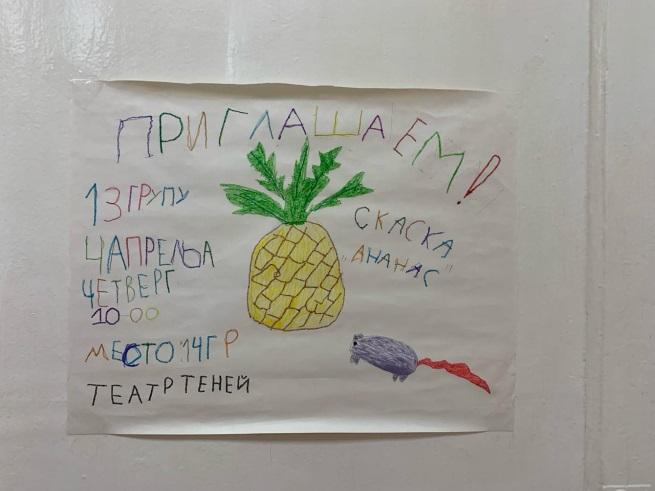 ПРИГЛАШАЕМ!
13 ГРУПУ
4 АПРЕЛЬА
ЧЕТВЕРГ
10 00
МЕСТО 14 ГР
ТЕАТР ТЕНЕЙ
СКАСКА
"АНАНАС"